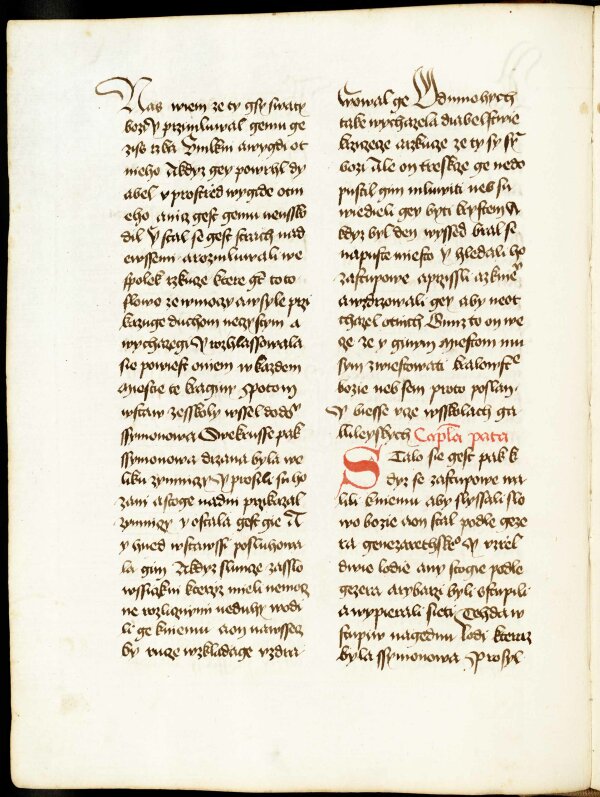 Nas wiem ze ty gsy swaty
bozy y przimluwal gemu ge
zis rzka Vmlkni a wygdi ot
nieho A kdyz gey powrhl dy
abel v prostred wygide otn
eho aniz gest gemu neussko
dil y stal se gest strach nad
ewssemi a rozmluwali we
spolek rzkuze ktere gt toto
slowo ze w moczy a w syle przi
kazuge duchom neczystym a
wychazegi y rozhlassowala
sie powiest o niem w kazdem
miestie te kraginy Potom
wstaw ze sskoly wssel do domu
ssymonowa Swekrusse pak
ssymonowa drzana byla we
liku zymniczy y prosili su ho
za ni a stoge nad ni przikazal
zymniczy y ostala gest gie A
y hned wstawssi posluhowa
la gim A kdyz slunce zasslo
wssickni kterziz mieli nemoc
ne rozlicznymi neduhy wodi
li ge k niemu a on na wssecz
ky ruce wzkladage vzdra
wowal ge Od mnohych
take wychazela diabelstwie
krziczecze a rzkucze ze ty sy syn
bozi Ale on treskcze ge nedo
pustil gim mluwiti neb su
wiedieli gey byti krystem A
kdyz byl den wyssed bral se
na puste miesto y hledali ho
zastupowe a przissli az k niemu
a wdrzowali gey aby neot
chazel ot nich Gimzto on we
ce ze y ginym miestom mu
sym zwiestowati kralowstwie
bozie neb sem proto poslan
Y biesse vcze w sskolach ga
lileyskych Capla pata
Stalo sie gest pak k
dyz se zastupowe wa
lili k niemu aby slyssali slo
wo bozie a on stal podle geze
ra genezarethskeho Y vzrzel
dwie lodie any stogie podle
gezera a rybarzi byli ostupili
a wypierali sieti Tehda w
stupiw na gednu lodi kteraz
byla ssymonowa Prosyl